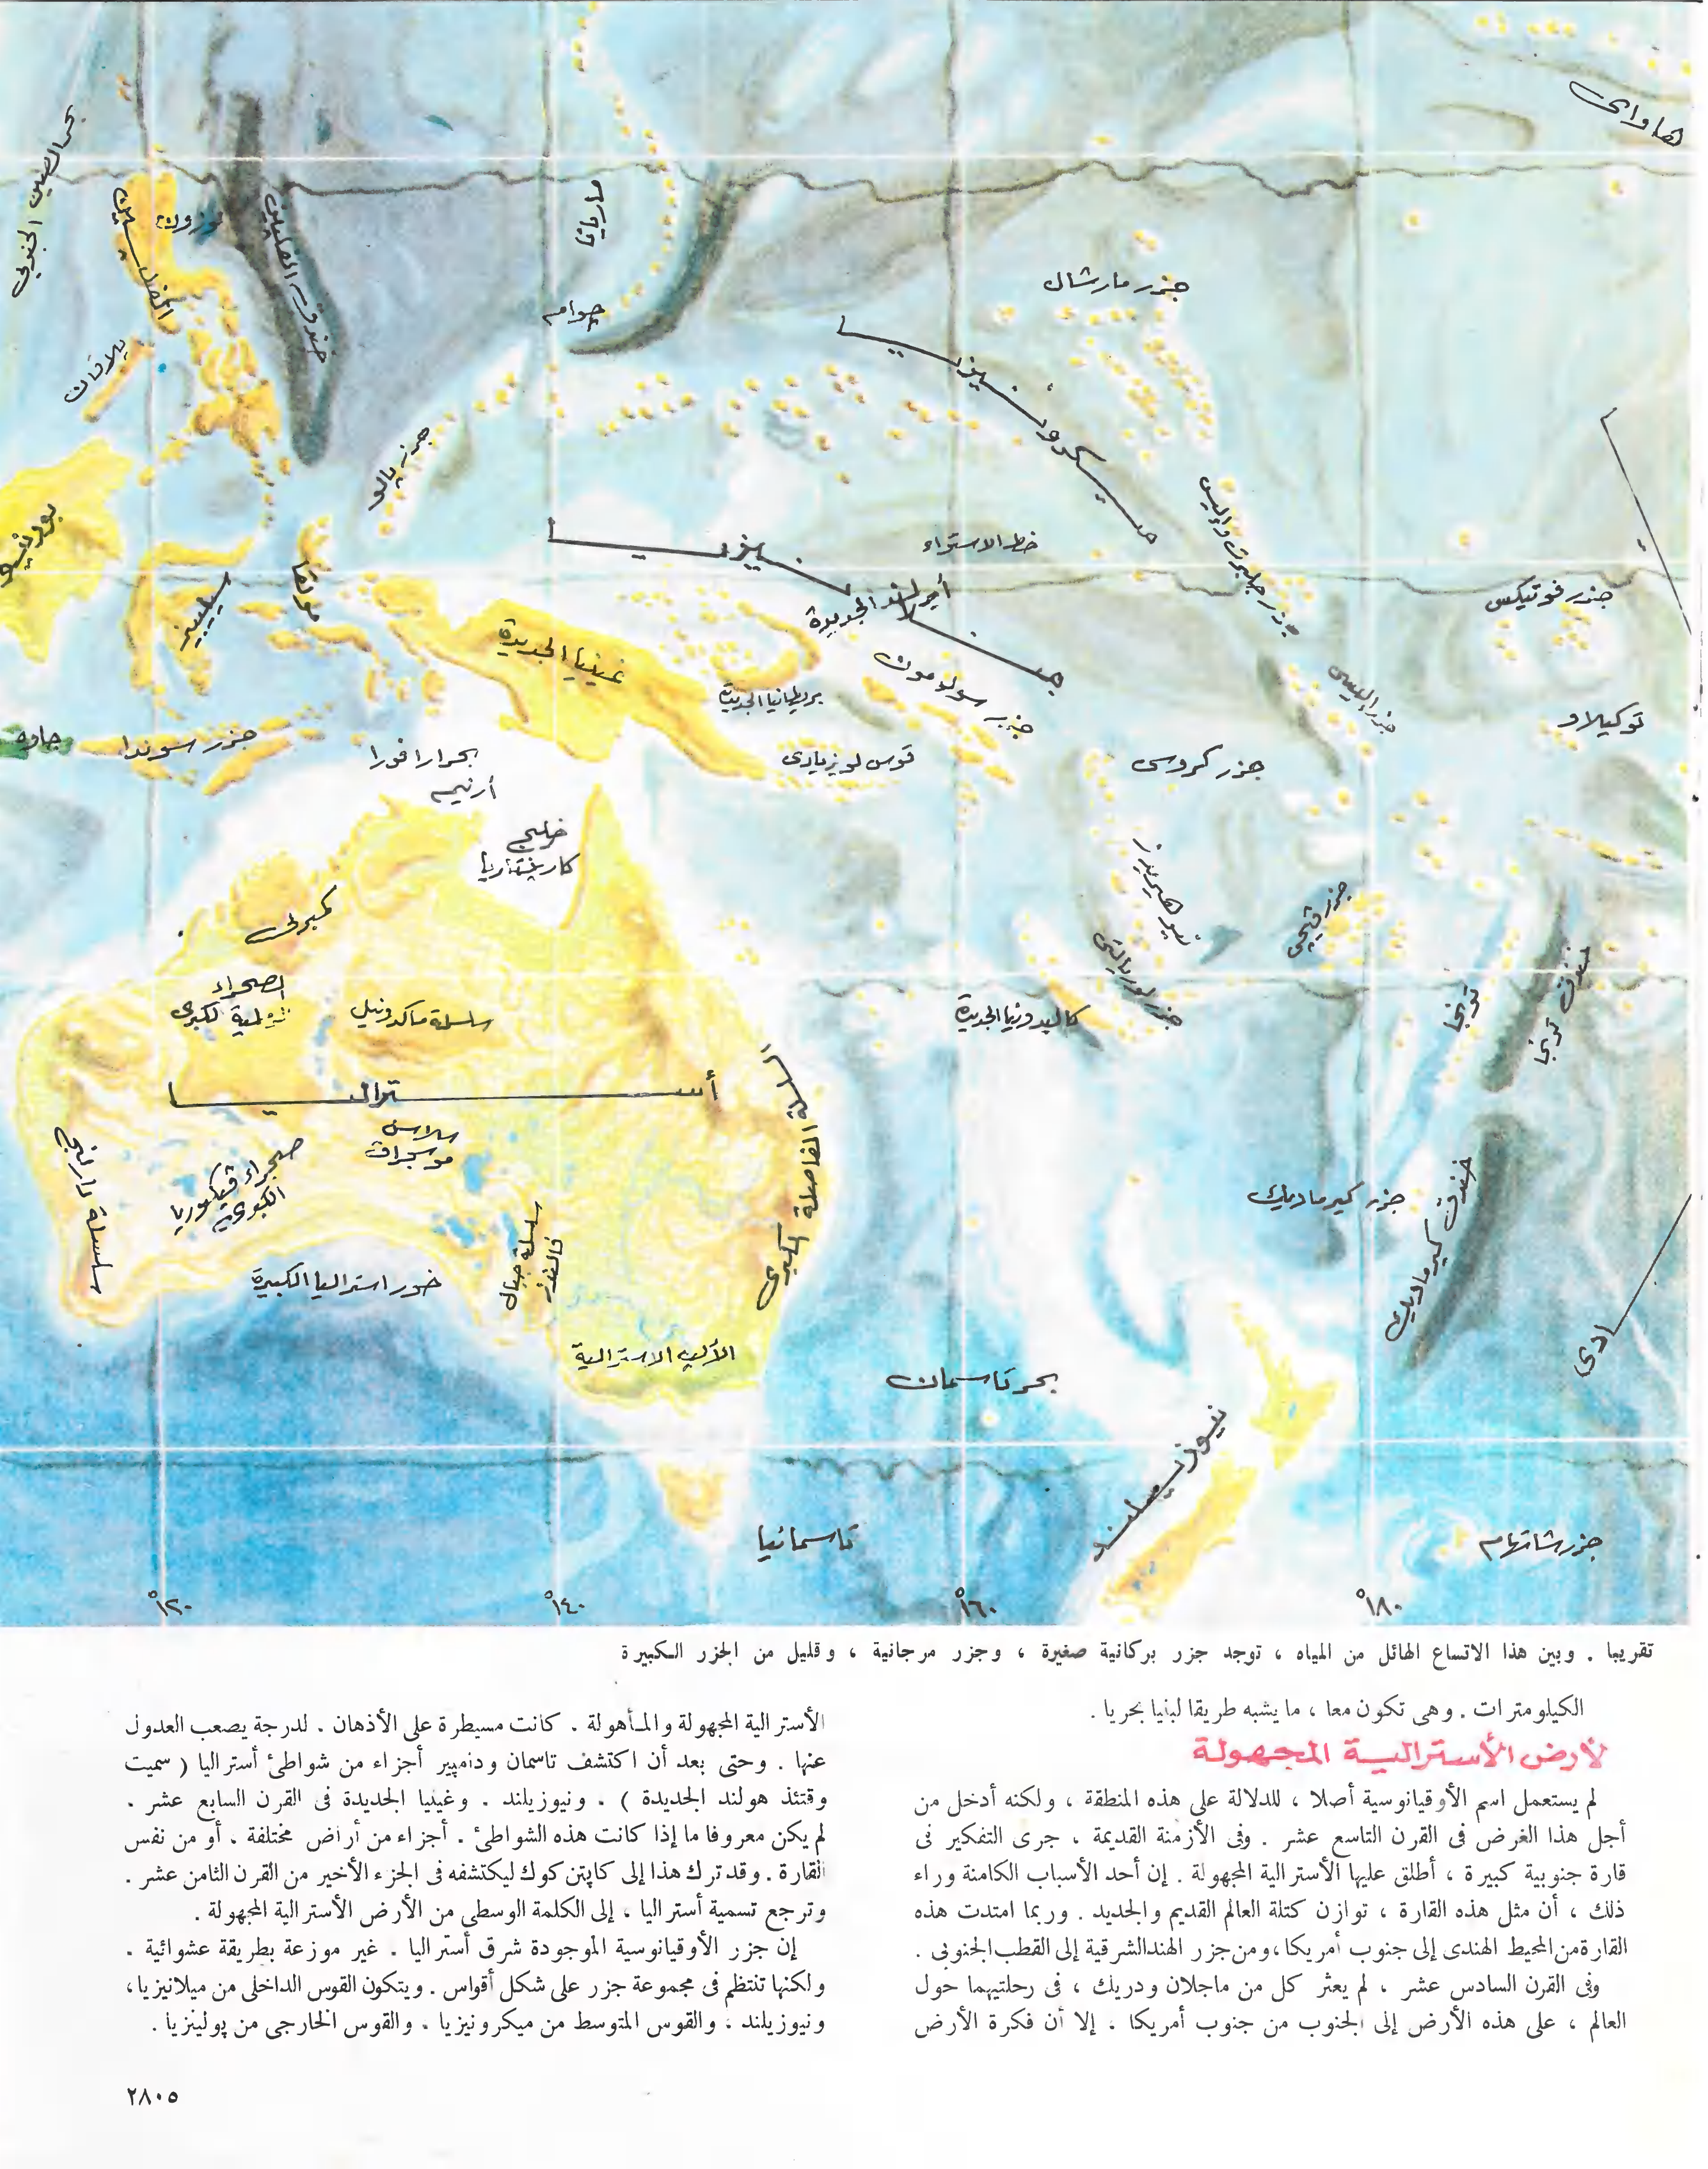 هاواى
بحر الصين الجنوبي
الفلبين
لوزون
خندق الفلبين
ماريانا
جوام
جزر مارشال
پلاوان
ميكرونيزيا
جزر پالو
بورنيو
سيليبيز
مولقا
ميلانيزيا
خط الاستواء
جزر جلبرت وإليس
جزر فونيكس
غينيا الجديدة
أيرلاند الجديدة
بريطانيا الجديدة
جزر سولومون
جزر إليس
توكيلاو
جاوه
جزر سوندا
بحر ارافورا
أرنيم
قوس لويزيادى
جزر كروس
خليج
كارپنتاريا
كمبرلى
نيوهبريدز
جزر ڤيچى
الصحراء
الرملية الكبرى
سلسلة ماكدونيل
كاليدونيا الجديدة
جزر لويالتى
تونجا
خندق تونجا
أستراليا
سلاسل
موسجراڤ
صحراء ڤيكتوريا
الكبرى
سلسلة دارلنج
سلسلة جبال
فلندرز
السلسلة الفاصلة الكبرى
خور استراليا الكبيرة
الألپ الاسترالية
جزر كيرماديك
خندق كيرماديك
بحر تاسمان
نيوزيلند
تاسمانيا
جزر شاتهام
١٢٠°
١٤٠°
١٦٠°
١٨٠°
تقريبا . وبين هذا الاتساع الهائل من المياه ، توجد جزر بركانية صغيرة ، وجزر مرجانية ، وقليل من الجزر الكبيرة
الكيلومترات . وهى تكون معا ، ما يشبه طريقا لبنيا بحريا .
لأرض الأسترالية المجهولة
لم يستعمل اسم الأوقيانوسية أصلا ، للدلالة على هذه المنطقة ، ولكنه أدخل من
أجل هذا الغرض فى القرن التاسع عشر . وفى الأزمنة القديمة ، جرى التفكير فى
قارة جنوبية كبيرة ، أطلق عليها الأسترالية المجهولة . إن أحد الأسباب الكامنة وراء
ذلك ، أن مثل هذه القارة ، توازن كتلة العالم القديم والجديد . وربما امتدت هذه
القارة من المحيط الهندى إلى جنوب أمريكا ، ومن جزر الهند الشرقية إلى القطب الجنوبى .
وفى القرن السادس عشر ، لم يعثر كل من ماجلان ودريك ، فى رحلتيهما حول
العالم ، على هذه الأرض إلى الجنوب من جنوب أمريكا . إلا أن فكرة الأرض
الأسترالية المجهولة والمأهولة . كانت مسيطرة على الأذهان . لدرجة يصعب العدول
عنها . وحتى بعد أن اكتشف تاسمان ودامپير أجزاء من شواطئ أستراليا ( سميت
وقتئذ هولند الجديدة ) . ونيوزيلند . وغينيا الجديدة فى القرن السابع عشر .
لم يكن معروفا ما إذا كانت هذه الشواطئ . أجزاء من أراض مختلفة . أو من نفس
القارة . وقد ترك هذا إلى كاپتن كوك ليكتشفه فى الجزء الأخير من القرن الثامن عشر .
وترجع تسمية أستراليا ، إلى الكلمة الوسطى من الأرض الأسترالية المجهولة .
إن جزر الأوقيانوسية الموجودة شرق أستراليا . غير موزعة بطريقة عشوائية .
ولكنها تنتظم فى مجموعة جزر على شكل أقواس . ويتكون القوس الداخلى من ميلانيزيا ،
ونيوزيلند ، والقوس المتوسط من ميكرونيزيا . والقوس الخارجى من پولينزيا .
٢٨٠٥